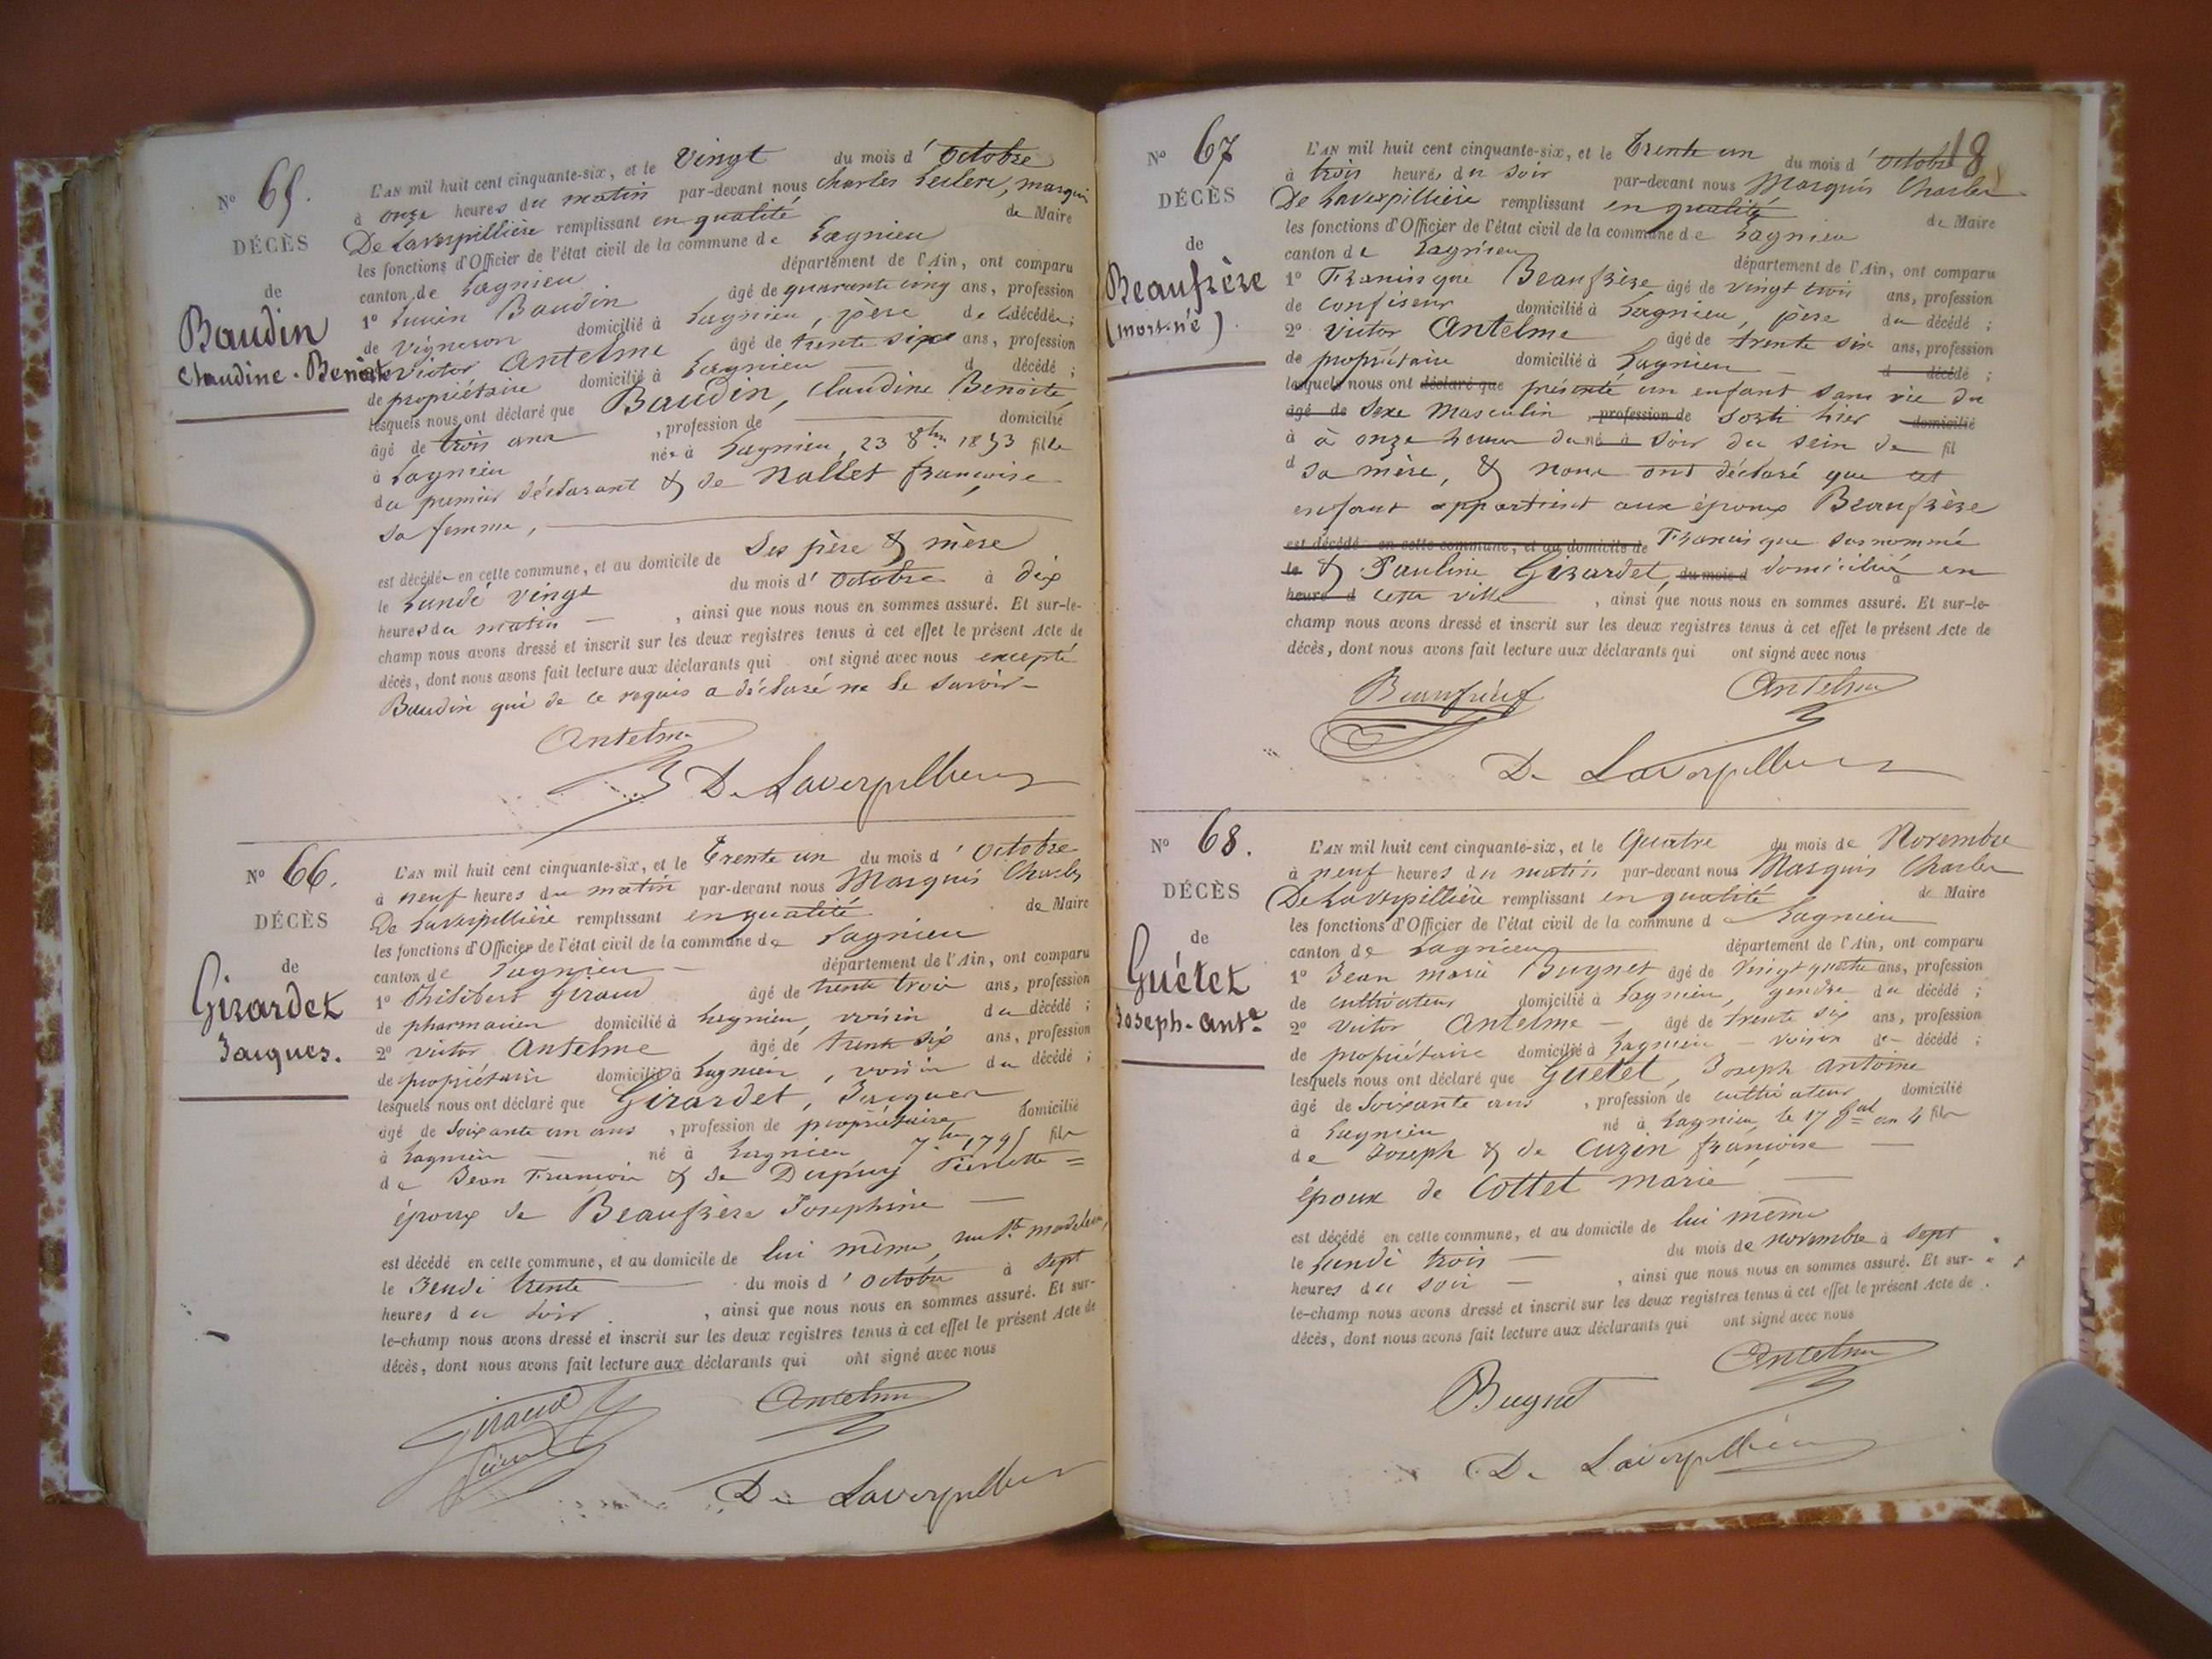 N° 65.
DÉCÈS
de
Baudin
Claudine-Benoite
L'AN mil huit cent cinquante-six, et le Vingt du mois d'octobre
à onze heures du matin par-devant nous Charles Leclerc, marquis
De Laverpillière remplissant en qualité de Maire
les fonctions d'Officier de l'état civil de la commune de Lagnieu
canton de Lagnieu département de l'Ain, ont comparu
1° Baudin âgé de quarante cinq ans, profession
de vigneron domicilié à Lagnieu, père de la décédée;
2° Victor Antelme âgé de trente six ans, profession
de propriétaire domicilié à Lagnieu d décédé;
lesquels nous ont déclaré que Baudin, Claudine Benoite,
âgé de trois ans, profession de domicilié
à Lagnieu née à Lagnieu, 23 8bre 1853 fille
du premier déclarant & de Nallet françoise
sa femme,
est décédée en cette commune, et au domicile de Ses père & mère
le Lundi vingt du mois d'octobre à dix
heures du matin, ainsi que nous nous en sommes assuré. Et sur-le-
champ nous avons dressé et inscrit sur les deux registres tenus à cet effet le présent Acte de
décès, dont nous avons fait lecture aux déclarants qui ont signé avec nous excepté
Baudin qui de ce requis a déclaré ne le savoir
Antelme
De Laverpillière
N° 66.
DÉCÈS
de
Girardet
Jacques.
L'AN mil huit cent cinquante-six, et le Trente un du mois d'octobre
à neuf heures du matin par-devant nous Marquis Charles
De Laverpillière remplissant en qualité de Maire
les fonctions d'Officier de l'état civil de la commune de Lagnieu
canton de Lagnieu département de l'Ain, ont comparu
1° Philibert Giraud âgé de trente trois ans, profession
de pharmacien domicilié à Lagnieu, voisin du décédé;
2° Victor Antelme, âgé de trente six ans, profession
de propriétaire domicilié à Lagnieu, voisin du décédé;
lesquels nous ont déclaré que Girardet, Jacques
âgé de Soixante un ans, profession de propriétaire domicilié
à Lagnieu né à Lagnieu 7bre 1795 fils
de Jean François & de Dupuy Pierrette
époux de Beaufrère Josephine
est décédé en cette commune, et au domicile de lui même,
le Jeudi trente du mois d'octobre à sept
heures du soir, ainsi que nous nous en sommes assuré. Et sur-
le-champ nous avons dressé et inscrit sur les deux registres tenus à cet effet le présent Acte de
décès, dont nous avons fait lecture aux déclarants qui ont signé avec nous
Giraud
Antelme
De Laverpillière
18
N° 67
DÉCÈS
de
Beaufrère
(mort-né).
L'AN mil huit cent cinquante-six, et le Trente un du mois d'octobre
à trois heures du soir par-devant nous Marquis Charles
De Laverpillière remplissant en qualité de Maire
les fonctions d'Officier de l'état civil de la commune de Lagnieu
canton de Lagnieu département de l'Ain, ont comparu
1° Francisque Beaufrère âgé de vingt trois ans, profession
de confiseur domicilié à Lagnieu, père du décédé;
2° Victor Antelme âgé de trente six ans, profession
de propriétaire domicilié à Lagnieu d décédé;
lesquels nous ont déclaré que présenté un enfant sans vie du
âgé de Sexe Masculin profession de sorti hier domicilié
à à onze heures du né à soir du sein de fil
d sa mère, & nous ont déclaré que cet
enfant appartient aux époux Beaufrère
est décédé en cette commune, et au domicile de Francisque susnommé
le & Pauline Girardet, du mois d domiciliés à en
heure d cette ville, ainsi que nous nous en sommes assuré. Et sur-le-
champ nous avons dressé et inscrit sur les deux registres tenus à cet effet le présent Acte de
décès, dont nous avons fait lecture aux déclarants qui ont signé avec nous
Antelme
De Laverpillière
N° 68.
DÉCÈS
de
Guétet
Joseph-Ante
L'AN mil huit cent cinquante-six, et le Quatre du mois de Novembre
à neuf heures du matin par-devant nous Marquis Charles
De Laverpillière remplissant en qualité de Maire
les fonctions d'Officier de l'état civil de la commune d Lagnieu
canton de Lagnieu département de l'Ain, ont comparu
1° Jean marie Bugnet âgé de Vingt quatre ans, profession
de cultivateur domicilié à Lagnieu, gendre du décédé;
2° Victor Antelme âgé de trente six ans, profession
de propriétaire domicilié à Lagnieu voisin du décédé;
lesquels nous ont déclaré que Guétet, Joseph Antoine
âgé de Soixante ans, profession de cultivateur domicilié
à Lagnieu né à Lagnieu, le 17 an 4 fils
de Joseph & de Cuzin françoise
époux de Cottet marie
est décédé en cette commune, et au domicile de lui même
le Lundi trois du mois de novembre à sept
heures du soir, ainsi que nous nous en sommes assuré. Et sur-
le-champ nous avons dressé et inscrit sur les deux registres tenus à cet effet le présent Acte de
décès, dont nous avons fait lecture aux déclarants qui ont signé avec nous
Antelme
Bugnet
De Laverpillière